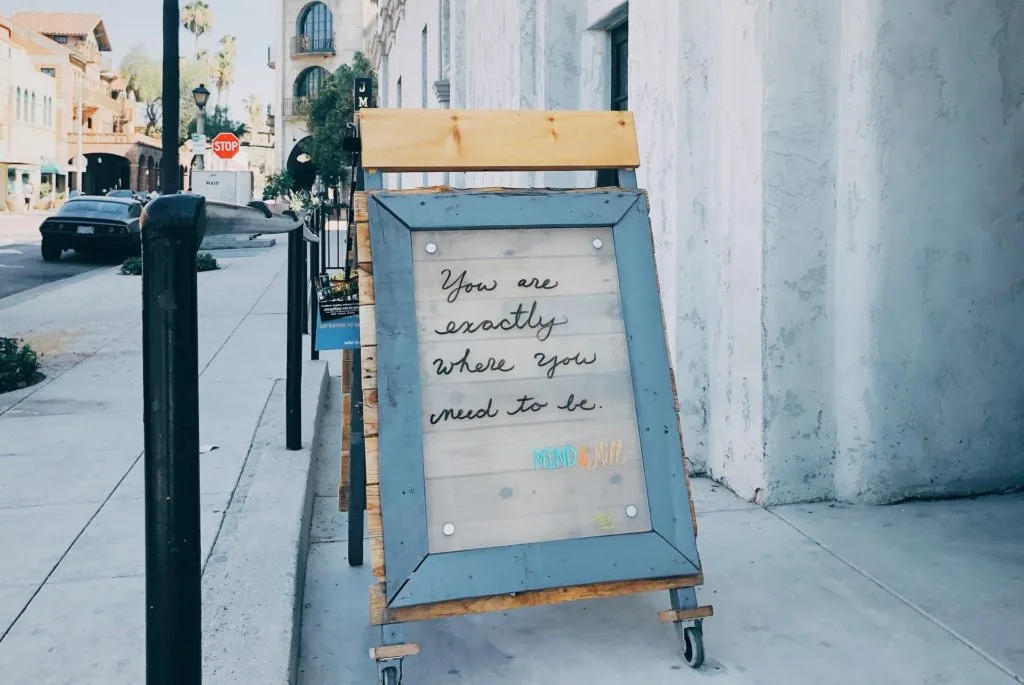 J
M
STOP
MAIN
You are
exactly
where you
need to be.
MIND & Mill